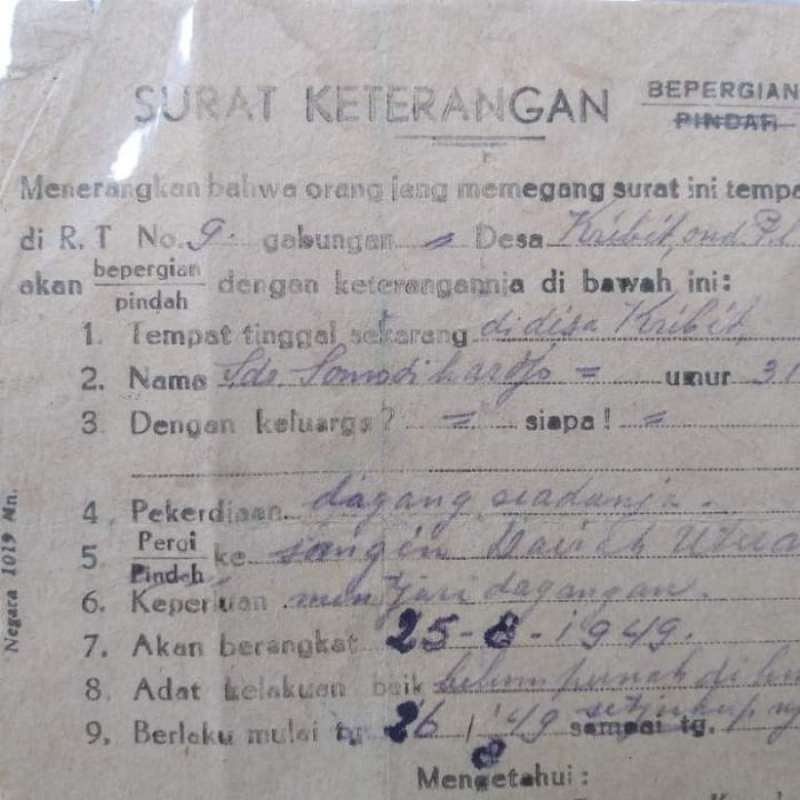 SURAT KETERANGAN BEPERGIAN
PINDAH
Menerangkan bahwa orang jang memegang surat ini tempa
di R.T No. 9. gabungan = Desa Kribit, ond.
akan bepergian/pindah dengan keterangannja di bawah ini:
1. Tempat tinggal sekarang didisa Kribit,
2. Nama Sdr. Somodihardjo = umur 31
3. Dengan keluarga? = siapa! =
4. Pekerdjaan dagang seadanja.
5. Pergi/Pindah ke
6. Keperluan mentjari dagangan.
7. Akan berangkat 25-8-1949.
8. Adat kelakuan baik belum pernah di hu
9. Berlaku mulai tg 26/8 '49 sampai tg.
Mengetahui:
Negara 1019 Mn.